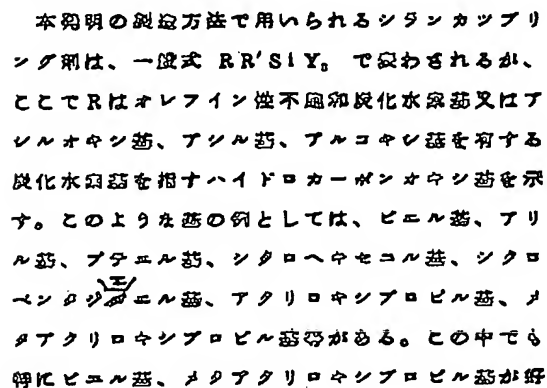 本発明の製造方法で用いられるシランカップリ
ング剤は、一般式 RR'SiY₂ で表わされるが、
ここでRはオレフイン性不飽和炭化水素基又はア
シルオキシ基、アシル基、アルコキシ基を有する
炭化水素基を指すハイドロカーボンオキシ基を示
す。このような基の例としては、ビニル基、アリ
ル基、ブテニル基、シクロヘキセニル基、シクロ
ペンタジエニル基、アクリロキシプロピル基、メ
タアクリロキシプロピル基等がある。この中でも
特にビニル基、メタアクリロキシプロピル基が好